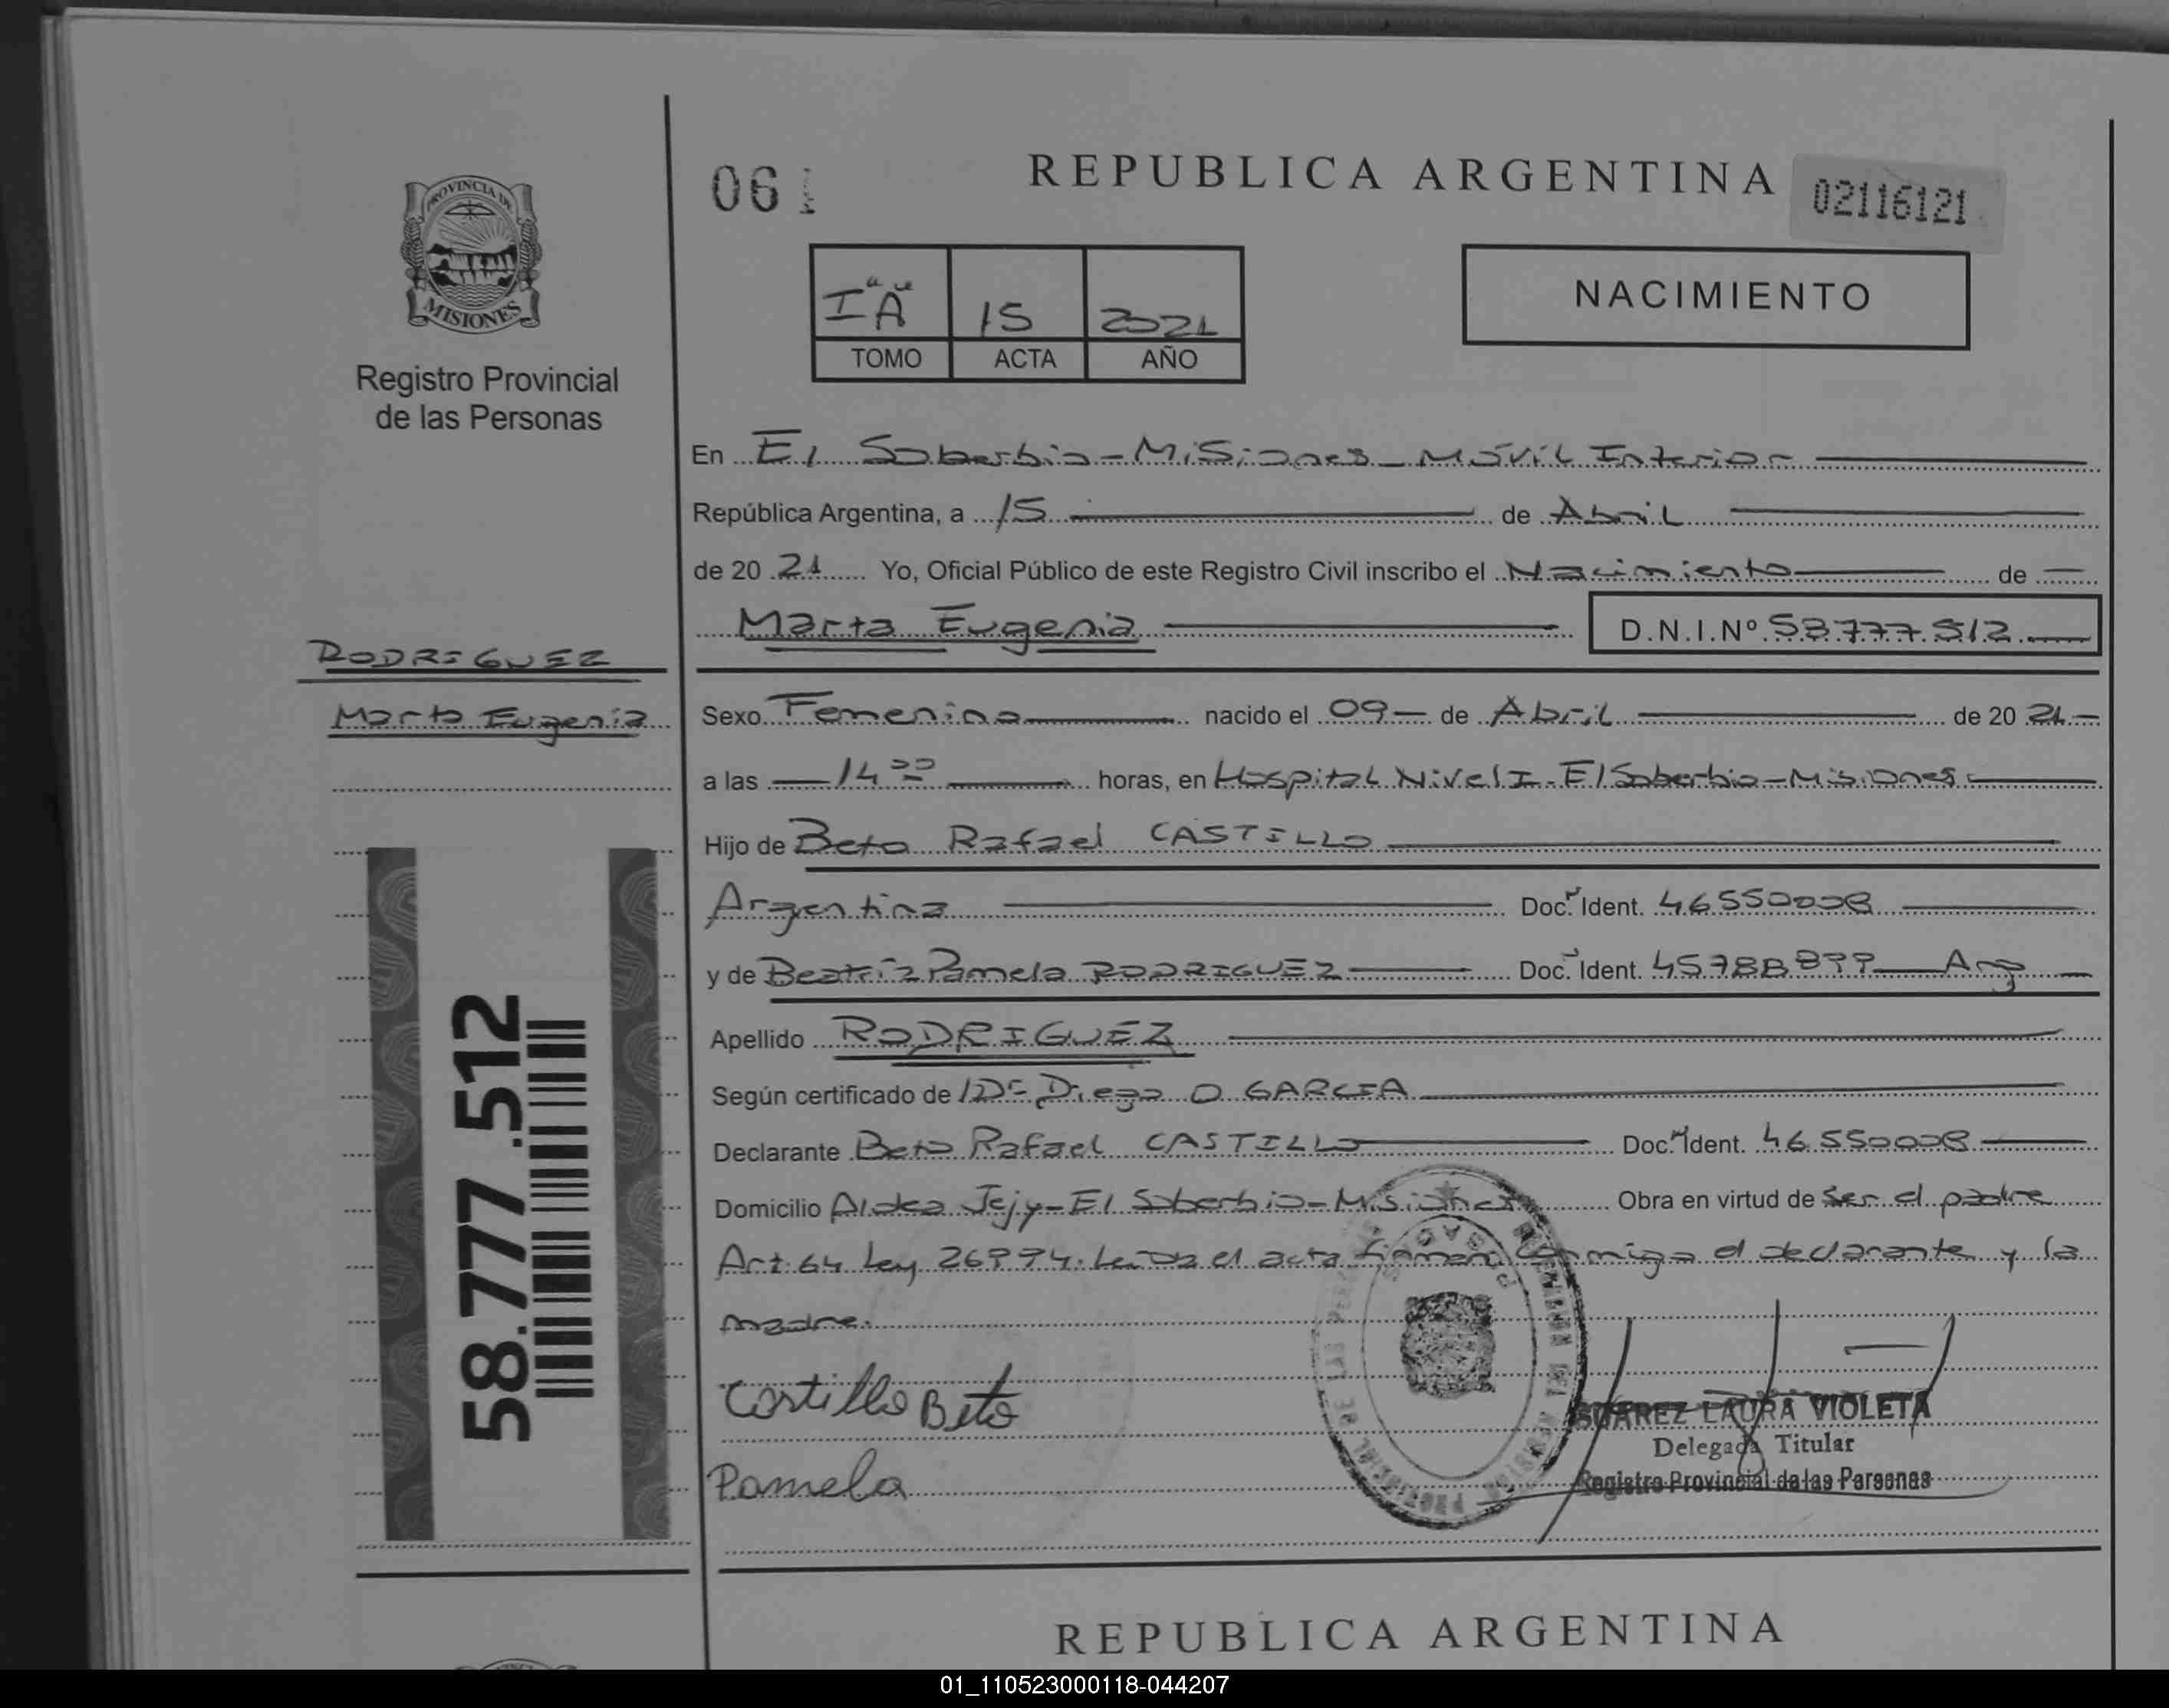 PROVINCIA DE
MISIONES
Registro Provincial
de las Personas
RODRIGUEZ
Marta Eugenia
58.777.512
061
REPUBLICA ARGENTINA
02116121
NACIMIENTO
I"A" 15 2021
TOMO ACTA AÑO
En El Soberbio - Misiones - Móvil Interior
República Argentina, a 15 de Abril
de 20 21 Yo, Oficial Público de este Registro Civil inscribo el Nacimiento de
Marta Eugenia D.N.I.Nº 58.777.512
Sexo Femenino nacido el 09 de Abril de 20 21
a las 14 00 horas, en Hospital Nivel I - El Soberbio - Misiones
Hijo de Beto Rafael CASTILLO
Argentina Doc. Ident. 46550008
y de Beatriz Pamela RODRIGUEZ Doc. Ident. Arg
Apellido RODRIGUEZ
Según certificado de Dr Diego O GARCIA
Declarante Beto Rafael CASTILLO Doc. Ident. 46550008
Domicilio Aldea Jejy - El Soberbio - Misiones Obra en virtud de ser el padre
Art. 64 Ley 26994. Leida el acta firman conmigo el declarante y la
madre.
Castillo Beto
Pamela
SUAREZ LAURA VIOLETA
Delegada Titular
Registro Provincial de las Personas
REPUBLICA ARGENTINA
01_110523000118-044207